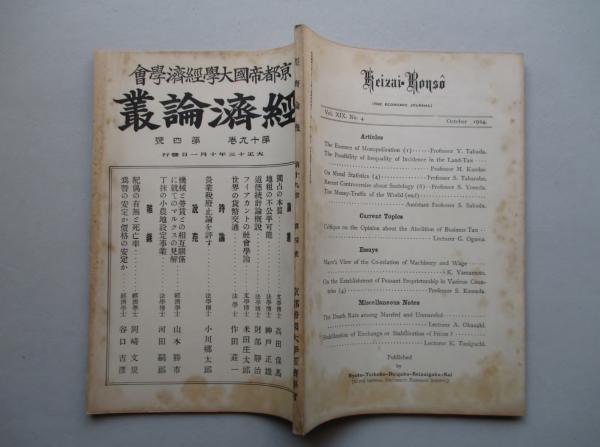 京都帝國大學經濟學會
經濟論叢
第十九巻 第四號
大正十三年十月一日發行
論叢
獨占の本質 文學博士 高田保馬
地租の不公平可能 法學博士 神戸正雄
道德統計論槪説 法學博士 財部靜治
フィアカントの社會學論 文學博士 米田庄太郎
世界の貨幣交通 法學士 作田莊一
時論
營業税廢止論を評す 法學博士 小川郷太郎
說苑
機械と勞賃との相互關係
に就てのマルクスの見解 經濟學士 山本勝市
丁抹の小農地設定事業 法學博士 河田嗣郎
雜錄
配偶の有無と死亡率 經濟學士 岡崎文規
爲替の安定か價格の安定か 經濟學士 谷口吉彦
Keizai-Ronsô
(THE ECONOMIC JOURNAL)
Vol. XIX. No. 4 October 1924
Articles
The Essence of Monopolization (1) Professor Y. Takada.
The Possibility of Inequality of Incidence in the Land-Tax
Professor M. Kambe.
On Moral Statistics (4) Professor S. Takarabe.
Recent Controversies about Sociology (8) Professor S. Yoneda.
The Money-Traffic of the World (end)
Assistant Professor S. Sakuda.
Current Topics
Critique on the Opinion about the Abolition of Business Tax
Lecturer G. Ogawa.
Essays
Marx's View of the Co-relation of Machinery and Wage
K. Yamamoto.
On the Establishment of Peasant Proprietorship in Various Coun-
tries (4) Professor S. Kawada.
Miscellaneous Notes
The Death Rate among Married and Unmarried
Lecturer A. Okazaki.
Stabilization of Exchange or Stabilization of Prices?
Lecturer K. Taniguchi.
Published
by
Kyoto-Teikoku-Daigaku-Keizaigaku-Kai